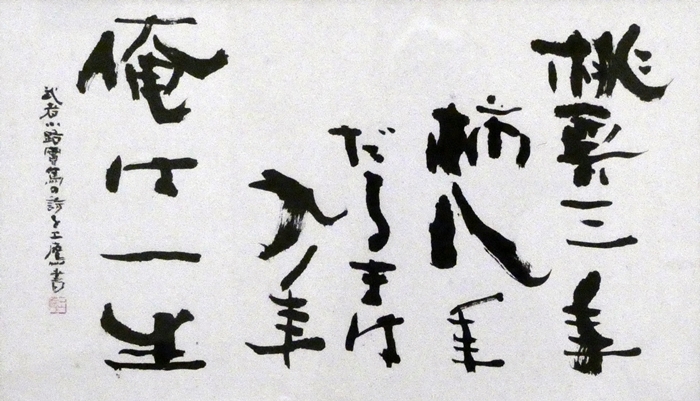 桃栗三年
柿八年
だるまは
九年
俺は一生
武者小路實篤の詩を